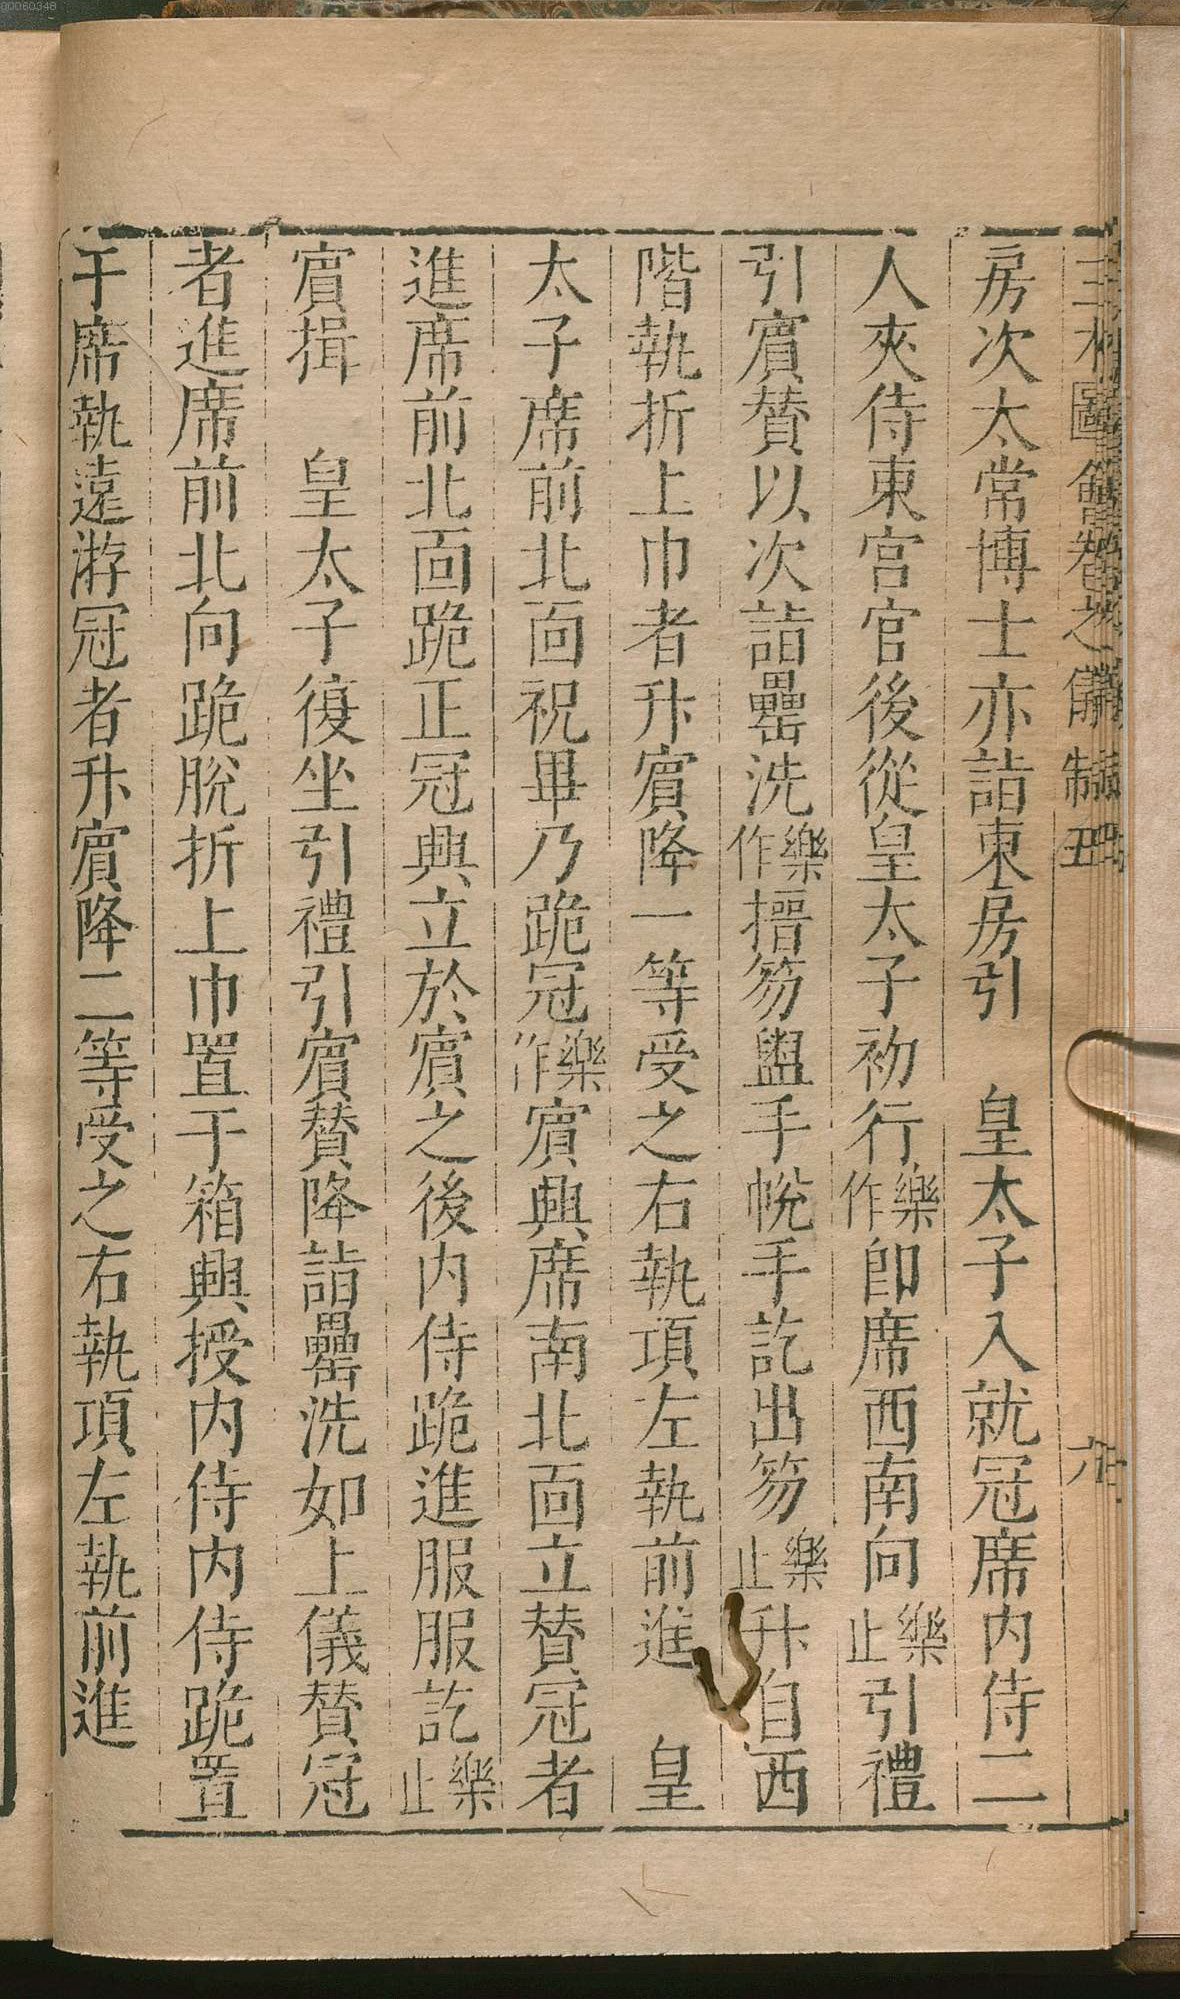 房次太常博士亦詣東房引　皇太子入就冠席内侍二
人夾侍東宮官後從皇太子初行樂作卽席西南向樂止引禮
引賔賛以次詣罍洗樂作搢笏盥手帨手訖出笏樂止升自西
階執折上巾者升賔降一等受之右執項左執前進　皇
太子席前北面祝畢乃跪冠樂作賔興席南北面立賛冠者
進席前北面跪正冠興立於賔之後内侍跪進服服訖樂止
賔揖　皇太子復坐引禮引賔賛降詣罍洗如上儀賛冠
者進席前北向跪脫折上巾置于箱興授内侍内侍跪置
于席執遠游冠者升賔降二等受之右執項左執前進